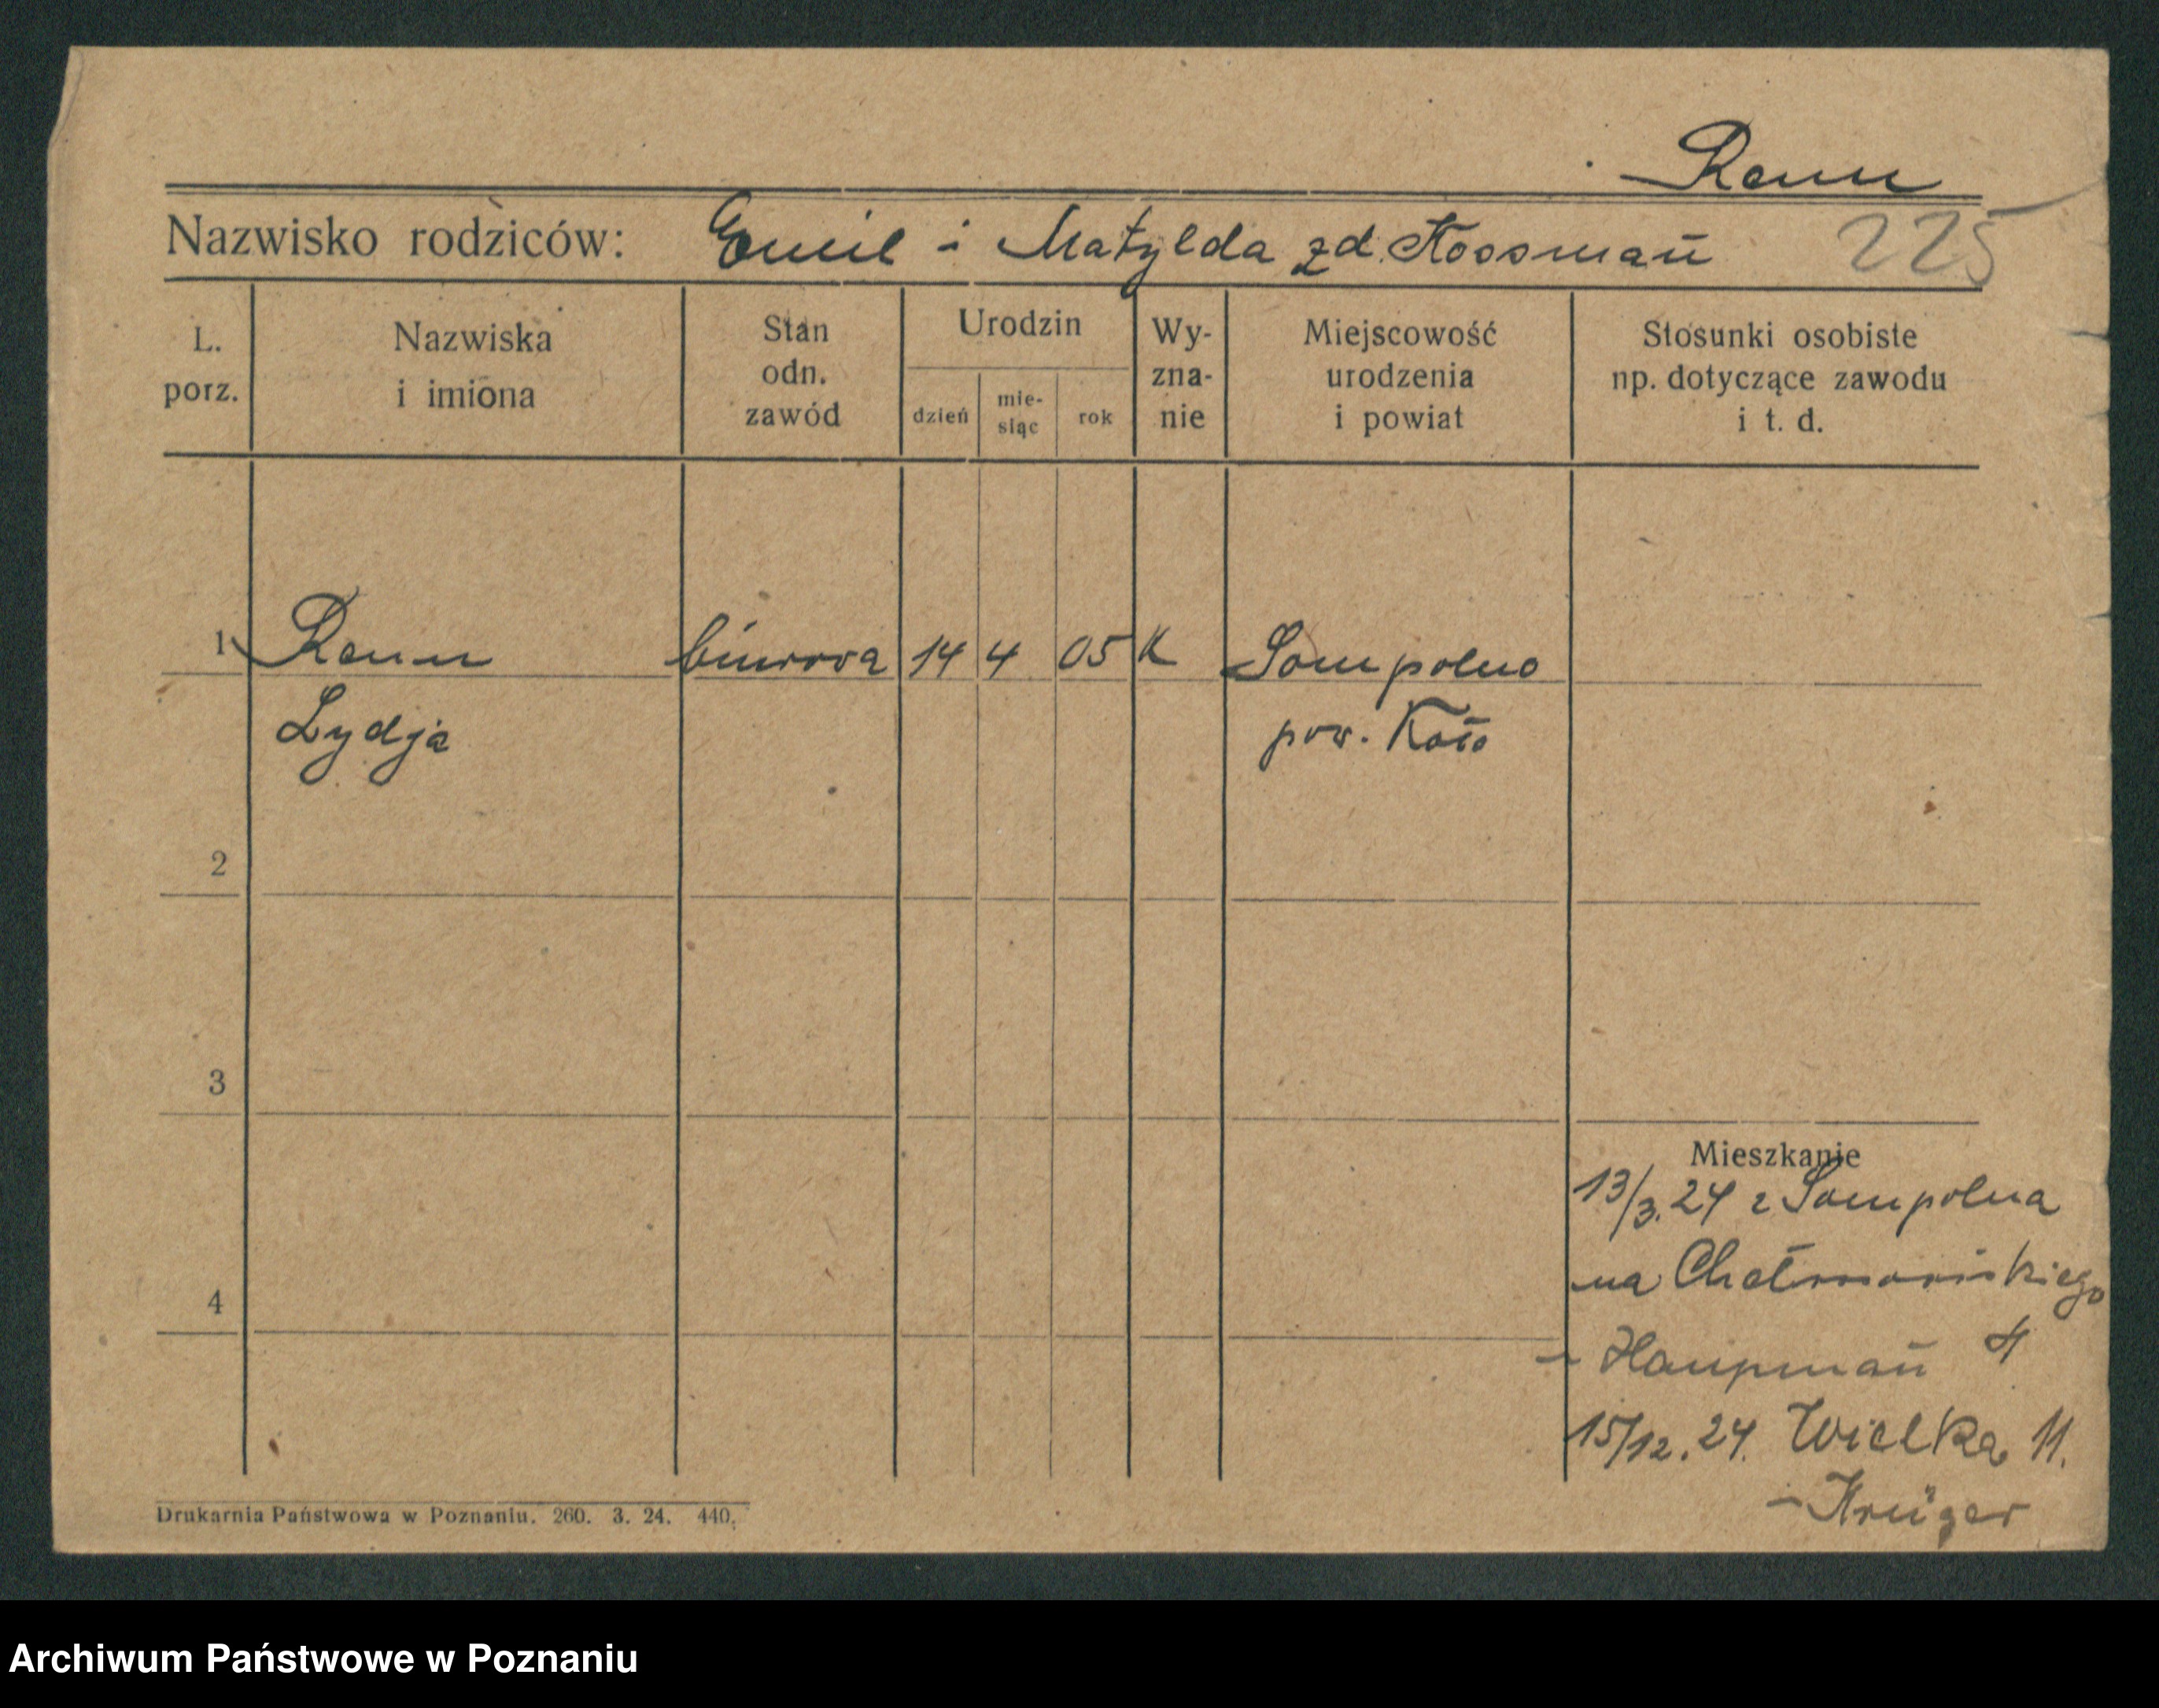 Renn
Nazwisko rodziców: Emil i Matylda zd. Kossmań
225
L. porz.
Nazwiska i imiona
Stan odn. zawód
Urodzin
dzień
mie- siąc
rok
Wy- zna- nie
Miejscowość urodzenia i powiat
Stosunki osobiste np. dotyczące zawodu i t. d.
1 Renn biurowa 14 4 05 K Sompolno
Lydja pow. Koło
2
3
4
Mieszkanie
13/3.24 z Sompolna
na Chełmońskiego
- Haupmań 4
15/12.24. Wielka 11.
- Krüger
Drukarnia Państwowa w Poznaniu. 260. 3. 24. 440.
Archiwum Państwowe w Poznaniu